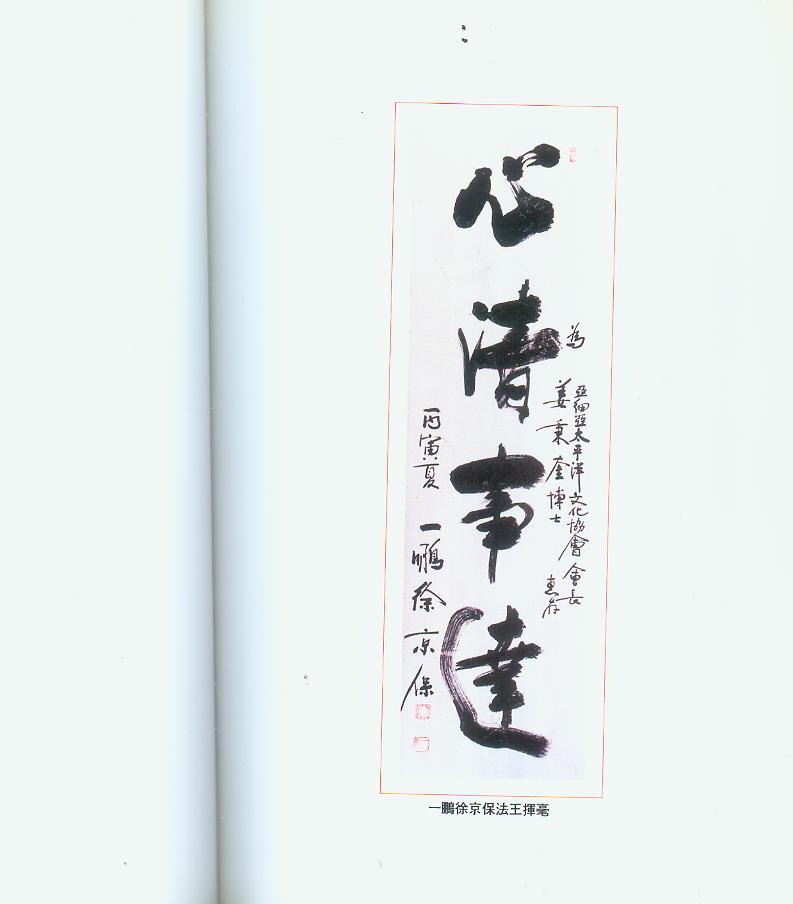 心清事達
為
亞細亞太平洋文化協會會長
姜秉奎博士
惠存
丙寅夏
一鵬徐京保
一鵬徐京保法王揮毫